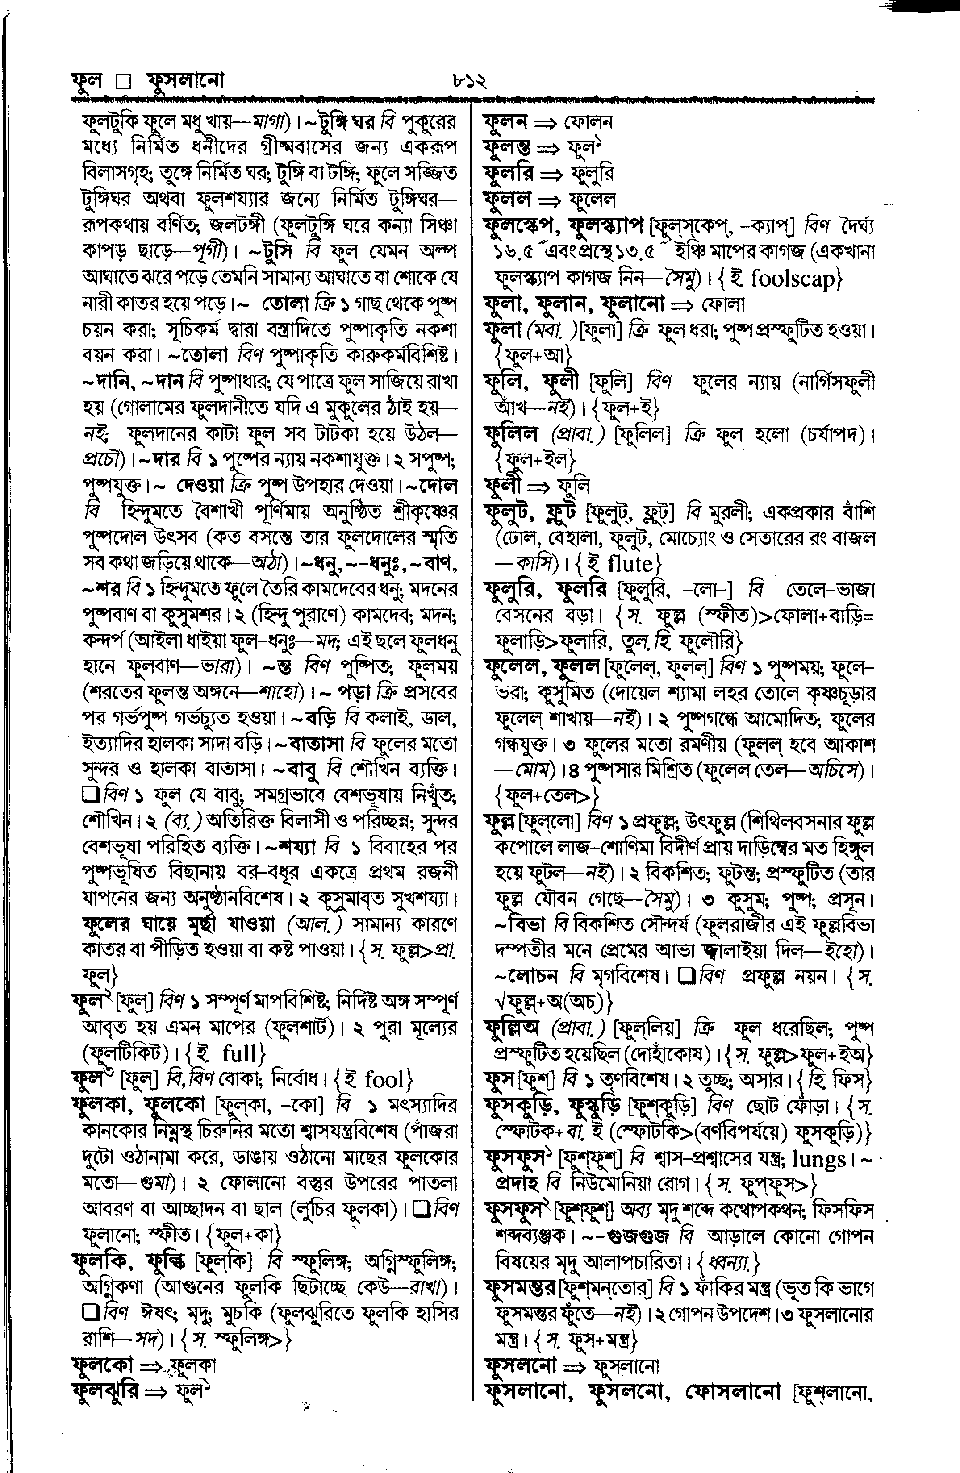 ফুল □ ফুসলানো
৮১২
ফুলটুকি ফুলে মধু খায়—মাগা)। ~টুঙ্গি ঘর বি পুকুরের
মধ্যে নির্মিত ধনীদের গ্রীষ্মবাসের জন্য একরূপ
বিলাসগৃহ; তুঙ্গে নির্মিত ঘর; টুঙ্গি বা টঙ্গি; ফুলে সজ্জিত
টুঙ্গিঘর অথবা ফুলশয্যার জন্যে নির্মিত টুঙ্গিঘর—
রূপকথায় বর্ণিত; জলটঙ্গী (ফুলটুঙ্গি ঘরে কন্যা সিঞ্চা
কাপড় ছাড়ে—পূগী)। ~টুসি বি ফুল যেমন অল্প
আঘাতে ঝরে পড়ে তেমনি সামান্য আঘাতে বা শোকে যে
নারী কাতর হয়ে পড়ে। ~ তোলা ক্রি ১ গাছ থেকে পুষ্প
চয়ন করা; সূচিকর্ম দ্বারা বস্ত্রাদিতে পুষ্পাকৃতি নকশা
বয়ন করা। ~তোলা বিণ পুষ্পাকৃতি কারুকর্মবিশিষ্ট।
~দানি, ~দান বি পুষ্পাধার; যে পাত্রে ফুল সাজিয়ে রাখা
হয় (গোলামের ফুলদানীতে যদি এ মুকুলের ঠাঁই হয়—
নই; ফুলদানের কাটা ফুল সব টাটকা হয়ে উঠল—
প্রচৌ)। ~দার বি ১ পুষ্পের ন্যায় নকশাযুক্ত। ২ সপুষ্প;
পুষ্পযুক্ত। ~ দেওয়া ক্রি পুষ্প উপহার দেওয়া। ~দোল
বি হিন্দুমতে বৈশাখী পূর্ণিমায় অনুষ্ঠিত শ্রীকৃষ্ণের
পুষ্পদোল উৎসব (কত বসন্তে তার ফুলদোলের স্মৃতি
সব কথা জড়িয়ে থাকে—অঠা)। ~ধনু, ~-ধনুঃ, ~বাণ,
~শর বি ১ হিন্দুমতে ফুলে তৈরি কামদেবের ধনু; মদনের
পুষ্পবাণ বা কুসুমশর। ২ (হিন্দু পুরাণে) কামদেব; মদন;
কন্দর্প (আইলা ধাইয়া ফুল-ধনুঃ—মদ; এই ছলে ফুলধনু
হানে ফুলবাণ—ভারা)। ~ন্ত বিণ পুষ্পিত; ফুলময়
(শরতের ফুলন্ত অঙ্গনে—শাহো)। ~ পড়া ক্রি প্রসবের
পর গর্ভপুষ্প গর্ভচ্যুত হওয়া। ~বড়ি বি কলাই, ডাল,
ইত্যাদির হালকা সাদা বড়ি। ~বাতাসা বি ফুলের মতো
সুন্দর ও হালকা বাতাসা। ~বাবু বি শৌখিন ব্যক্তি।
❑বিণ ১ ফুল যে বাবু; সমগ্রভাবে বেশভূষায় নিখুঁত;
শৌখিন। ২ (ব্য.) অতিরিক্ত বিলাসী ও পরিচ্ছন্ন; সুন্দর
বেশভূষা পরিহিত ব্যক্তি। ~শয্যা বি ১ বিবাহের পর
পুষ্পভূষিত বিছানায় বর-বধূর একত্রে প্রথম রজনী
যাপনের জন্য অনুষ্ঠানবিশেষ। ২ কুসুমাবৃত সুখশয্যা।
ফুলের ঘায়ে মূর্ছা যাওয়া (আল.) সামান্য কারণে
কাতর বা পীড়িত হওয়া বা কষ্ট পাওয়া। {স. ফুল্ল>প্রা.
ফুল}
ফুল২ [ফুল্] বিণ ১ সম্পূর্ণ মাপবিশিষ্ট; নির্দিষ্ট অঙ্গ সম্পূর্ণ
আবৃত হয় এমন মাপের (ফুলশার্ট)। ২ পুরা মূল্যের
(ফুলটিকিট)। {ই. full}
ফুল৩ [ফুল্] বি,বিণ বোকা; নির্বোধ। {ই fool}
ফুলকা, ফুলকো [ফুল্‌কা, -কো] বি ১ মৎস্যাদির
কানকোর নিম্নস্থ চিরুনির মতো শ্বাসযন্ত্রবিশেষ (পাঁজরা
দুটো ওঠানামা করে, ডাঙায় ওঠানো মাছের ফুলকোর
মতো—গুমা)। ২ ফোলানো বস্তুর উপরের পাতলা
আবরণ বা আচ্ছাদন বা ছাল (লুচির ফুলকা)। ❑বিণ
ফুলানো; স্ফীত। {ফুল+কা}
ফুলকি, ফুল্কি [ফুল্‌কি] বি স্ফুলিঙ্গ; অগ্নিস্ফুলিঙ্গ;
অগ্নিকণা (আগুনের ফুলকি ছিটাচ্ছে কেউ—রাখা)।
❑বিণ ঈষৎ; মৃদু; মুচকি (ফুলঝুরিতে ফুলকি হাসির
রাশি—সদ)। {স. স্ফুলিঙ্গ>}
ফুলকো ⇒ ফুলকা
ফুলঝুরি ⇒ ফুল১
ফুলন ⇒ ফোলন
ফুলন্ত ⇒ ফুল১
ফুলরি ⇒ ফুলুরি
ফুলল ⇒ ফুলেল
ফুলস্কেপ, ফুলস্ক্যাপ [ফুল্‌স্‌কেপ্, -ক্যাপ্] বিণ দৈর্ঘ্য
১৬.৫ ˝ এবং প্রস্থে ১৩.৫ ˝ ইঞ্চি মাপের কাগজ (একখানা
ফুলস্ক্যাপ কাগজ নিন—সৈমু)। {ই foolscap}
ফুলা, ফুলান, ফুলানো ⇒ ফোলা
ফুলা (মবা.) [ফুলা] ক্রি ফুল ধরা; পুষ্প প্রস্ফুটিত হওয়া।
{ফুল+আ}
ফুলি, ফুলী [ফুলি] বিণ ফুলের ন্যায় (নার্গিসফুলী
আঁখ—নই)। {ফুল+ই}
ফুলিল (প্রাবা.) [ফুলিল] ক্রি ফুল হলো (চর্যাপদ)।
{ফুল+ইল}
ফুলী ⇒ ফুলি
ফুলুট, ফ্লুট [ফুলুট্, ফ্লুট্] বি মুরলী; একপ্রকার বাঁশি
(ঢোল, বেহালা, ফুলুট, মোচ্যোং ও সেতারের রং বাজল
—কাসি)। {ই flute}
ফুলুরি, ফুলরি [ফুলুরি, -লো-] বি তেলে-ভাজা
বেসনের বড়া। {স. ফুল্ল (স্ফীত)>ফোলা+ব্যড়ি=
ফুলাড়ি>ফুলারি, তুল. হি. ফুলৌরি}
ফুলেল, ফুলল [ফুলেল্, ফুলল্] বিণ ১ পুষ্পময়; ফুলে-
ভরা; কুসুমিত (দোয়েল শ্যামা লহর তোলে কৃষ্ণচূড়ার
ফুলেল্ শাখায়—নই)। ২ পুষ্পগন্ধে আমোদিত; ফুলের
গন্ধযুক্ত। ৩ ফুলের মতো রমণীয় (ফুলল্ হবে আকাশ
—মোম)। ৪ পুষ্পসার মিশ্রিত (ফুলেল তেল—অচিসে)।
{ফুল+তেল>}
ফুল্ল [ফুল্‌লো] বিণ ১ প্রফুল্ল; উৎফুল্ল (শিথিলবসনার ফুল্ল
কপোলে লাজ-শোণিমা বিদীর্ণ প্রায় দাড়িম্বের মত হিঙ্গুল
হয়ে ফুটল—নই)। ২ বিকশিত; ফুটন্ত; প্রস্ফুটিত (তার
ফুল্ল যৌবন গেছে—সৈমু)। ৩ কুসুম; পুষ্প; প্রসূন।
~বিভা বি বিকশিত সৌন্দর্য (ফুলরাজীর এই ফুল্লবিভা
দম্পতীর মনে প্রেমের আভা জ্বালাইয়া দিল—ইহো)।
~লোচন বি মৃগবিশেষ। ❑বিণ প্রফুল্ল নয়ন। {স.
√ফুল্ল+অ(অচ)}
ফুল্লিঅ (প্রাবা.) [ফুল্‌লিয়] ক্রি ফুল ধরেছিল; পুষ্প
প্রস্ফুটিত হয়েছিল (দোহাঁকোষ)। {স. ফুল্ল>ফুল+ইঅ}
ফুস [ফুশ্] বি ১ তৃণবিশেষ। ২ তুচ্ছ; অসার। {হি. ফিস}
ফুসকুড়ি, ফুস্কুড়ি [ফুশ্‌কুড়ি] বিণ ছোট ফোঁড়া। {স.
স্ফোটক+বা. ই (স্ফোটকি>(বর্ণবিপর্যয়ে) ফুসকুড়ি)}
ফুসফুস১ [ফুশ্‌ফুশ্] বি শ্বাস-প্রশ্বাসের যন্ত্র; lungs। ~
প্রদাহ বি নিউমোনিয়া রোগ। {স. ফুপ্ফুস>}
ফুসফুস২ [ফুশ্‌ফুশ্] অব্য মৃদু শব্দে কথোপকথন; ফিসফিস
শব্দব্যঞ্জক। ~-গুজগুজ বি আড়ালে কোনো গোপন
বিষয়ের মৃদু আলাপচারিতা। {ধ্বন্যা.}
ফুসমন্তর [ফুশ্‌মন্‌তোর্] বি ১ ফাঁকির মন্ত্র (ভূত কি ভাগে
ফুসমন্তর ফুঁতে—নই)। ২ গোপন উপদেশ। ৩ ফুসলানোর
মন্ত্র। {স. ফুস+মন্ত্র}
ফুসলনো ⇒ ফুসলানো
ফুসলানো, ফুসলনো, ফোসলানো [ফুশ্‌লানো,